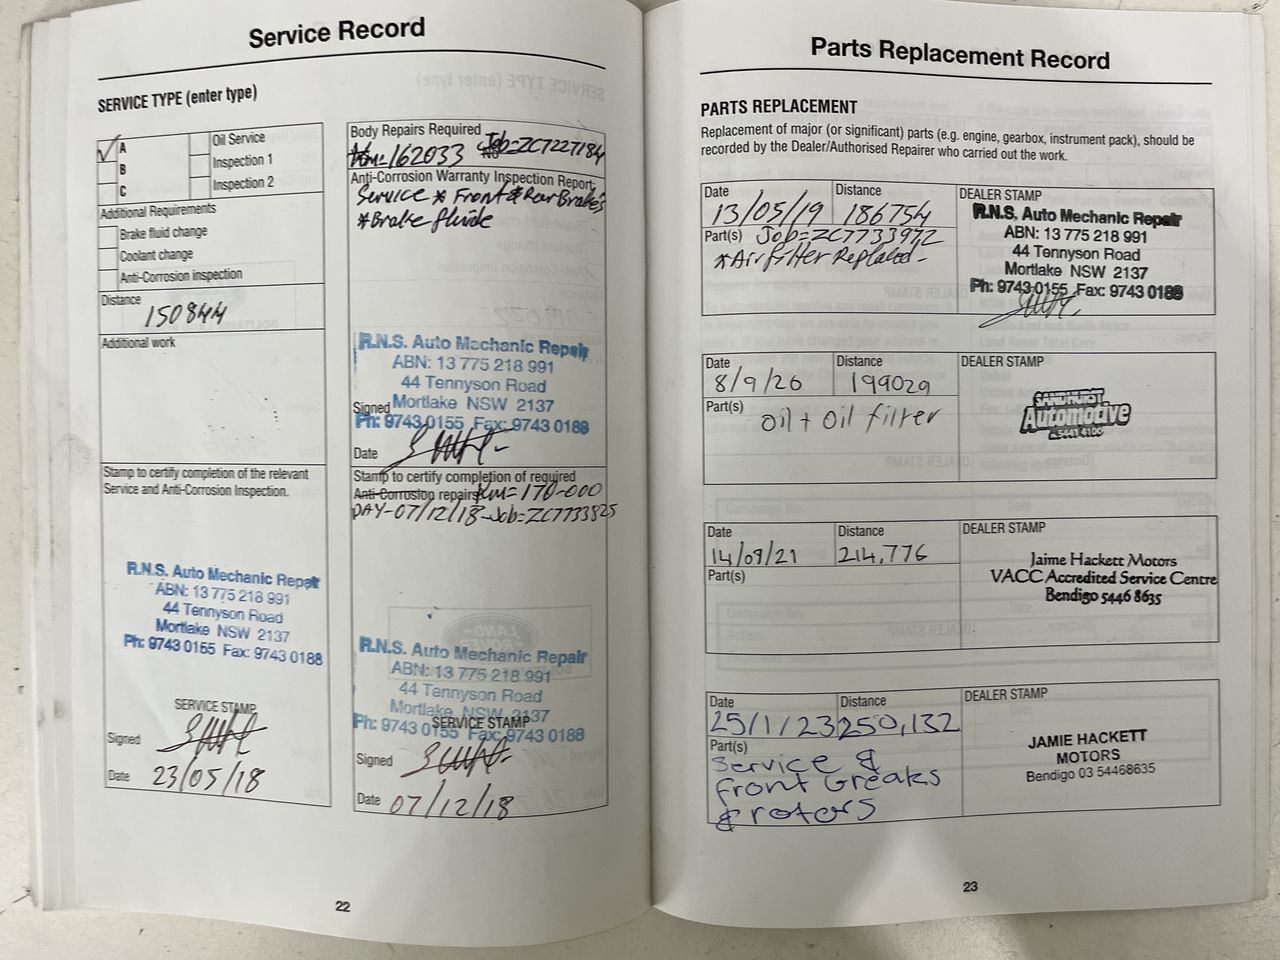 Service Record
SERVICE TYPE (enter type)
A
B
C
Oil Service
Inspection 1
Inspection 2
Additional Requirements
Brake fluid change
Coolant change
Anti-Corrosion inspection
Distance
150844
Additional work
Stamp to certify completion of the relevant
Service and Anti-Corrosion Inspection.
R.N.S. Auto Mechanic Repair
ABN: 13 775 218 991
44 Tennyson Road
Mortlake NSW 2137
Ph: 9743 0155 Fax: 9743 0188
SERVICE STAMP
Signed
Date 23/05/18
Body Repairs Required
Km=162033 Job=ZC7227184
Anti-Corrosion Warranty Inspection Report
Service * Front & Rear Brakes
*Brake fluide
R.N.S. Auto Mechanic Repair
ABN: 13 775 218 991
44 Tennyson Road
Signed Mortlake NSW 2137
Ph: 9743 0155 Fax: 9743 0188
Date
Stamp to certify completion of required
Anti-Corrosion repairs Km=170-000
DAY-07/12/18-Job=ZC7733825
R.N.S. Auto Mechanic Repair
ABN: 13 775 218 991
44 Tennyson Road
Mortlake NSW 2137
SERVICE STAMP
Ph: 9743 0155 Fax: 9743 0188
Signed
Date 07/12/18
22
Parts Replacement Record
PARTS REPLACEMENT
Replacement of major (or significant) parts (e.g. engine, gearbox, instrument pack), should be
recorded by the Dealer/Authorised Repairer who carried out the work.
Date
13/05/19
Distance
186754
Part(s) Job=ZC7733972
*Air filter Replaced-
DEALER STAMP
R.N.S. Auto Mechanic Repair
ABN: 13 775 218 991
44 Tennyson Road
Mortlake NSW 2137
Ph: 9743 0155 Fax: 9743 0188
Date
8/9/20
Distance
199029
Part(s)
Oil + Oil filter
DEALER STAMP
SANDHURST
Automotive
5441 4100
Date
14/09/21
Distance
214,776
Part(s)
DEALER STAMP
Jaime Hackett Motors
VACC Accredited Service Centre
Bendigo 5446 8635
Date
25/1/23
Distance
250,132
Part(s)
Service &
front Greaks
& rotors
DEALER STAMP
JAMIE HACKETT
MOTORS
Bendigo 03 54468635
23